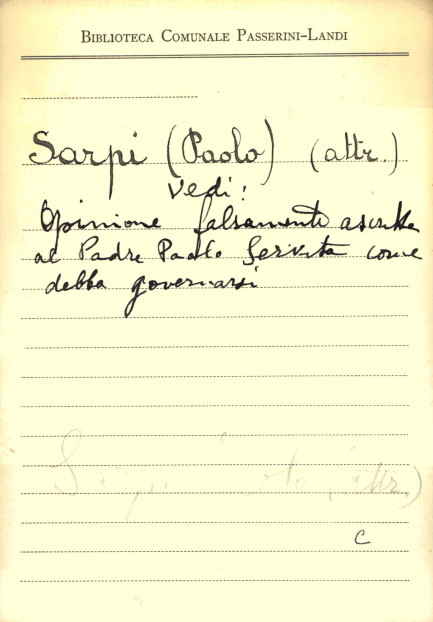 BIBLIOTECA COMUNALE PASSERINI-LANDI
Sarpi (Paolo) (attr.)
Vedi:
Opinione falsamente ascritta
al Padre Paolo Servita come
debba governarsi
Sarpi Paolo (attr.)
C